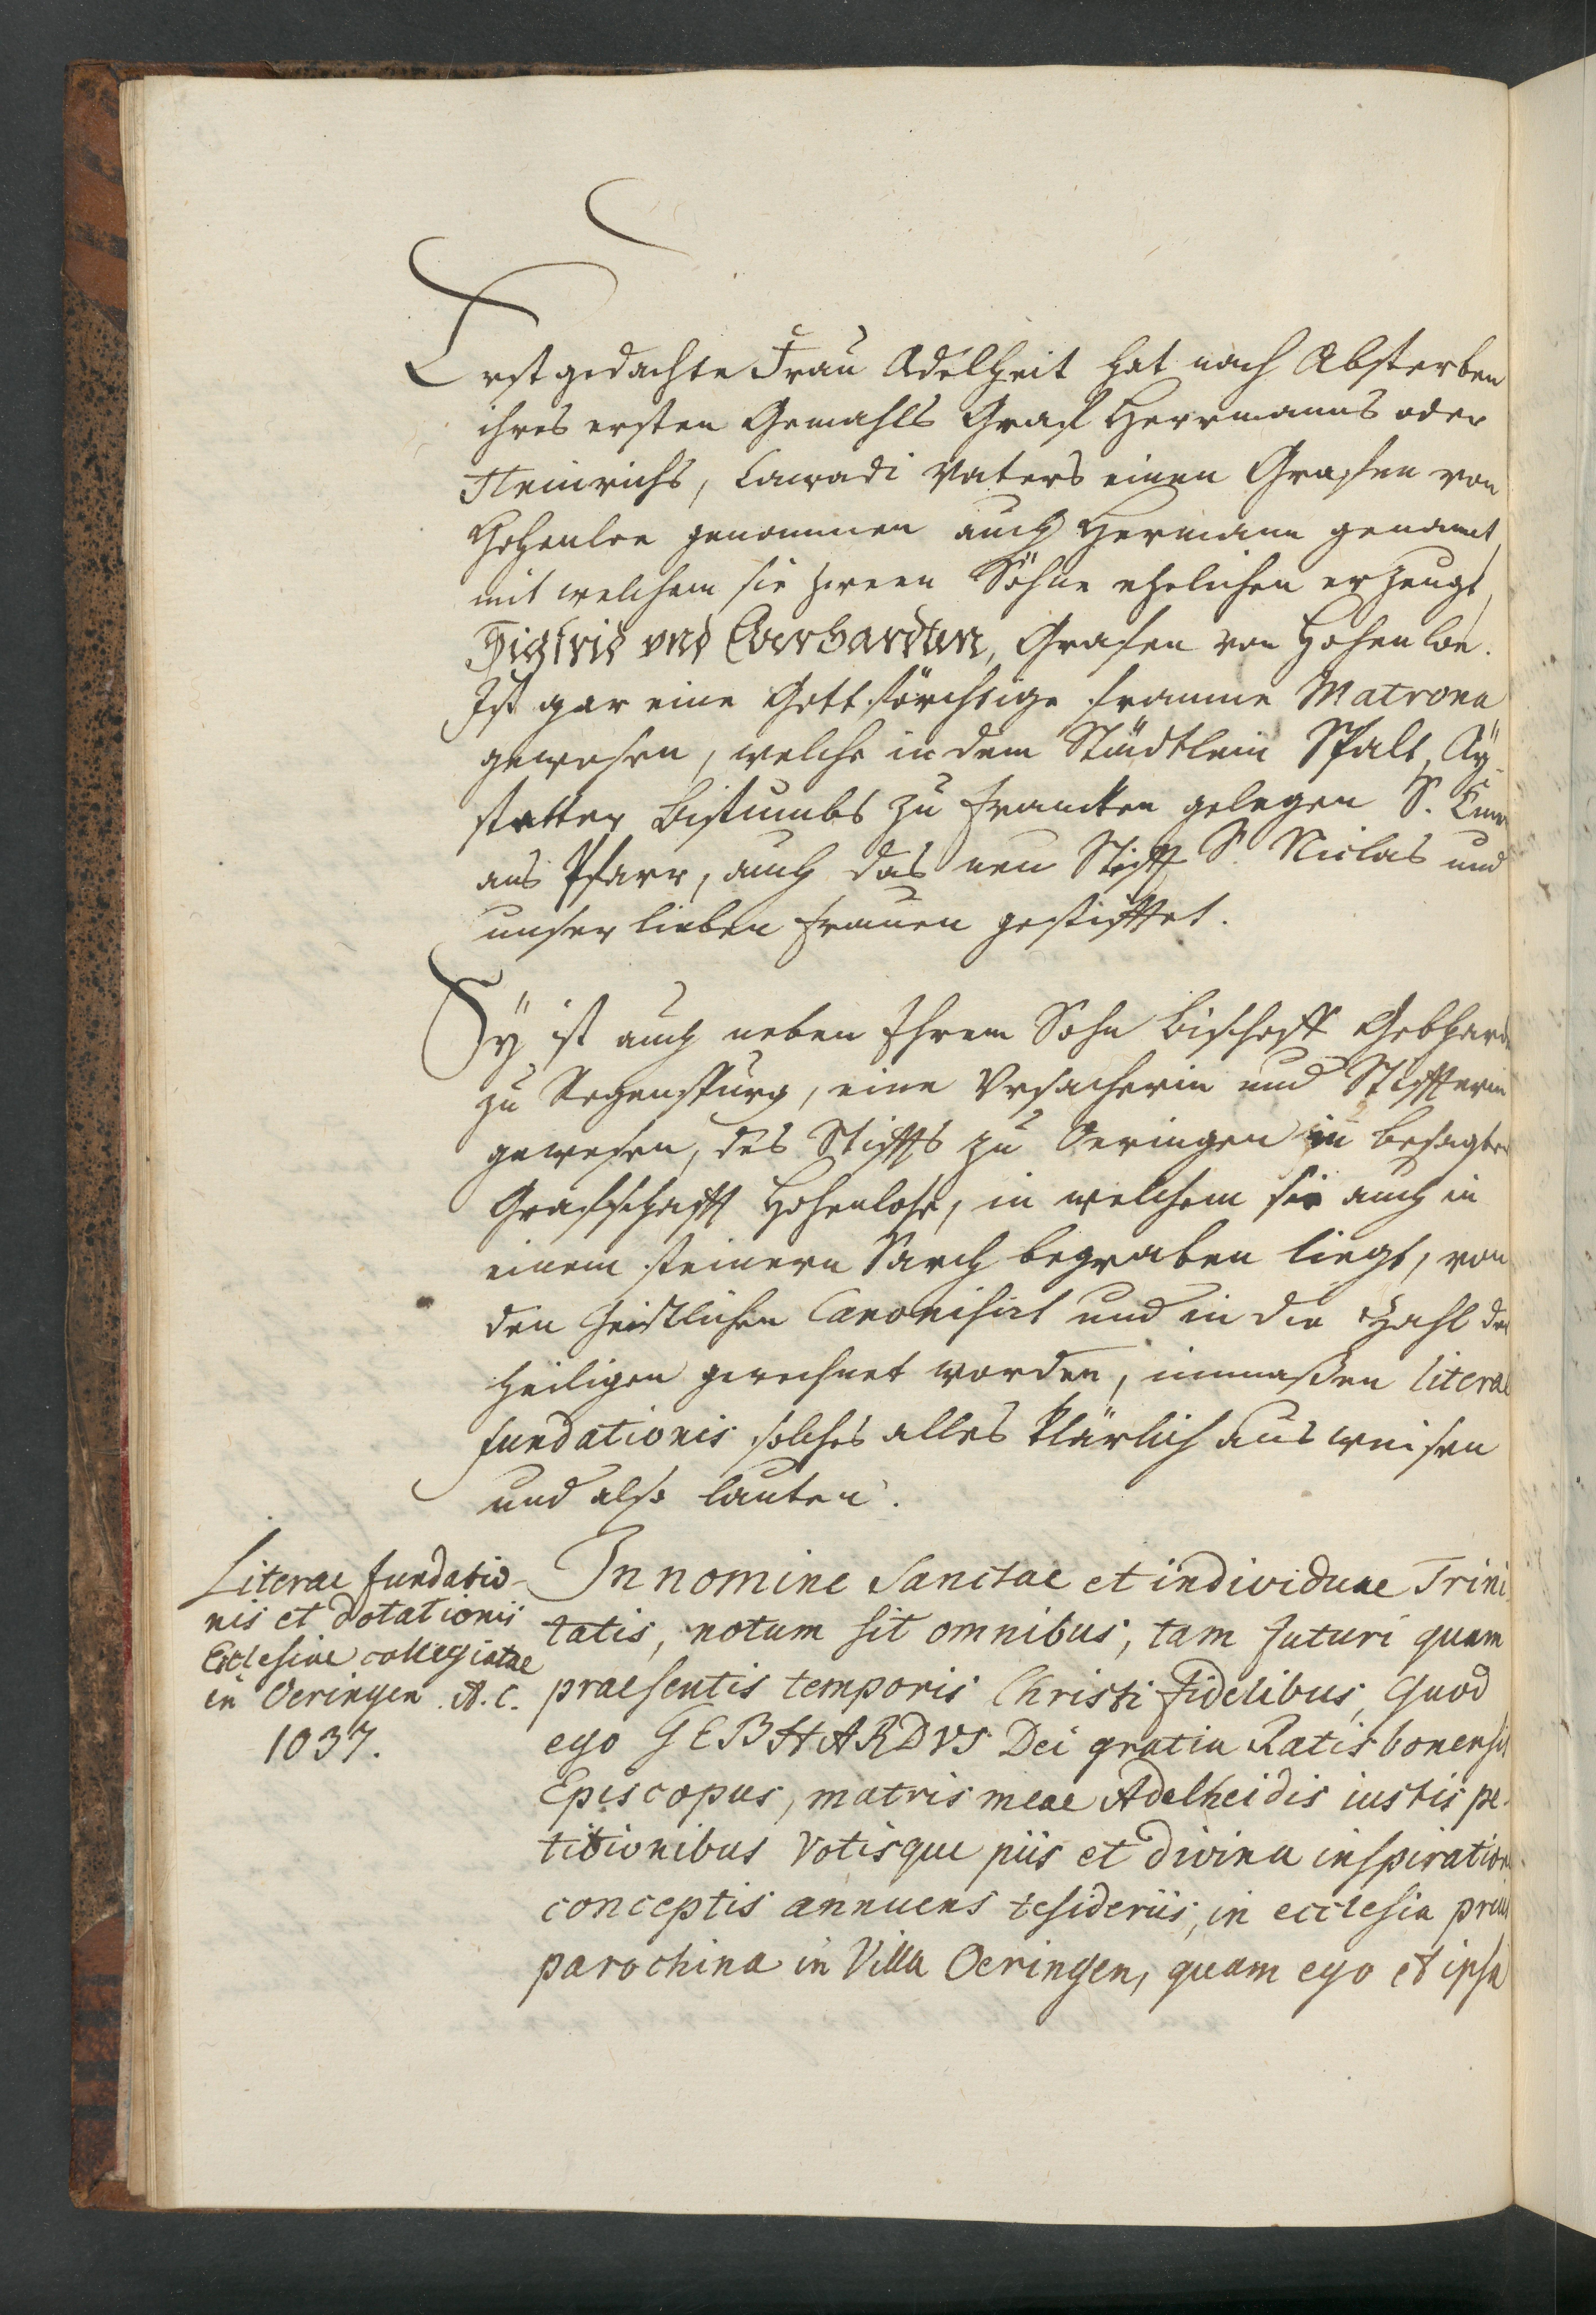 Erstgedachte Frau Adelheit hat nach Absterben
ihres ersten Gemahls Graf Herrmanns oder
Heinrichs, Conradi Vaters einen Grafen von
Hohenloe genommen auch Hermann genannt,
mit welchem sie zween Söhne ehelichen erzeugt,
Sigfrid vnd Eberhardten, Grafen von Hohenloe.
Ist gar eine Gottsförchtige fromme Matrona
gewesen, welche in dem Städtlein Spalt, Ay-
stetter Bistumbs zu Francken gelegen S.
ans Pfarr, auch das neu Stifft S. Niclas und
unser lieben Frauen gestifftet.
Sÿ ist auch neben Ihrem Sohn Bischoff Gebhard
zu Regenspurg, eine Vrsacherin und Stiffterin
gewesen, des Stiffts zu Oeringen in besagter
Graffschafft Hohenlohe, in welchem sie auch in
einem steinern Sarch begraben liegt, von
den Geistlichen Canonisirt und in die Zahl der
Heiligen gerechnet worden, inmaßen literae
fundationis solches alles klärlich ausweisen
und also lauten.
Literae fundatio-
nis et dotationis
Ecclesiae collegiatae
in Oeringen A. C.
1037.
In nomine Sanctae et individuae Trini-
tatis, notum sit omnibus, tam futuri quam
praesentis temporis Christi fidelibus, Quod
ego GEBHARDVS Dei gratia Ratisbonensis
Episcopus, matris meae Adelheidis iustis pe-
titionibus votisque piis et divina inspiratione
conceptis annuens desideriis, in ecclesia prius
parochina in Villa Oeringen, quam ego et ipsa